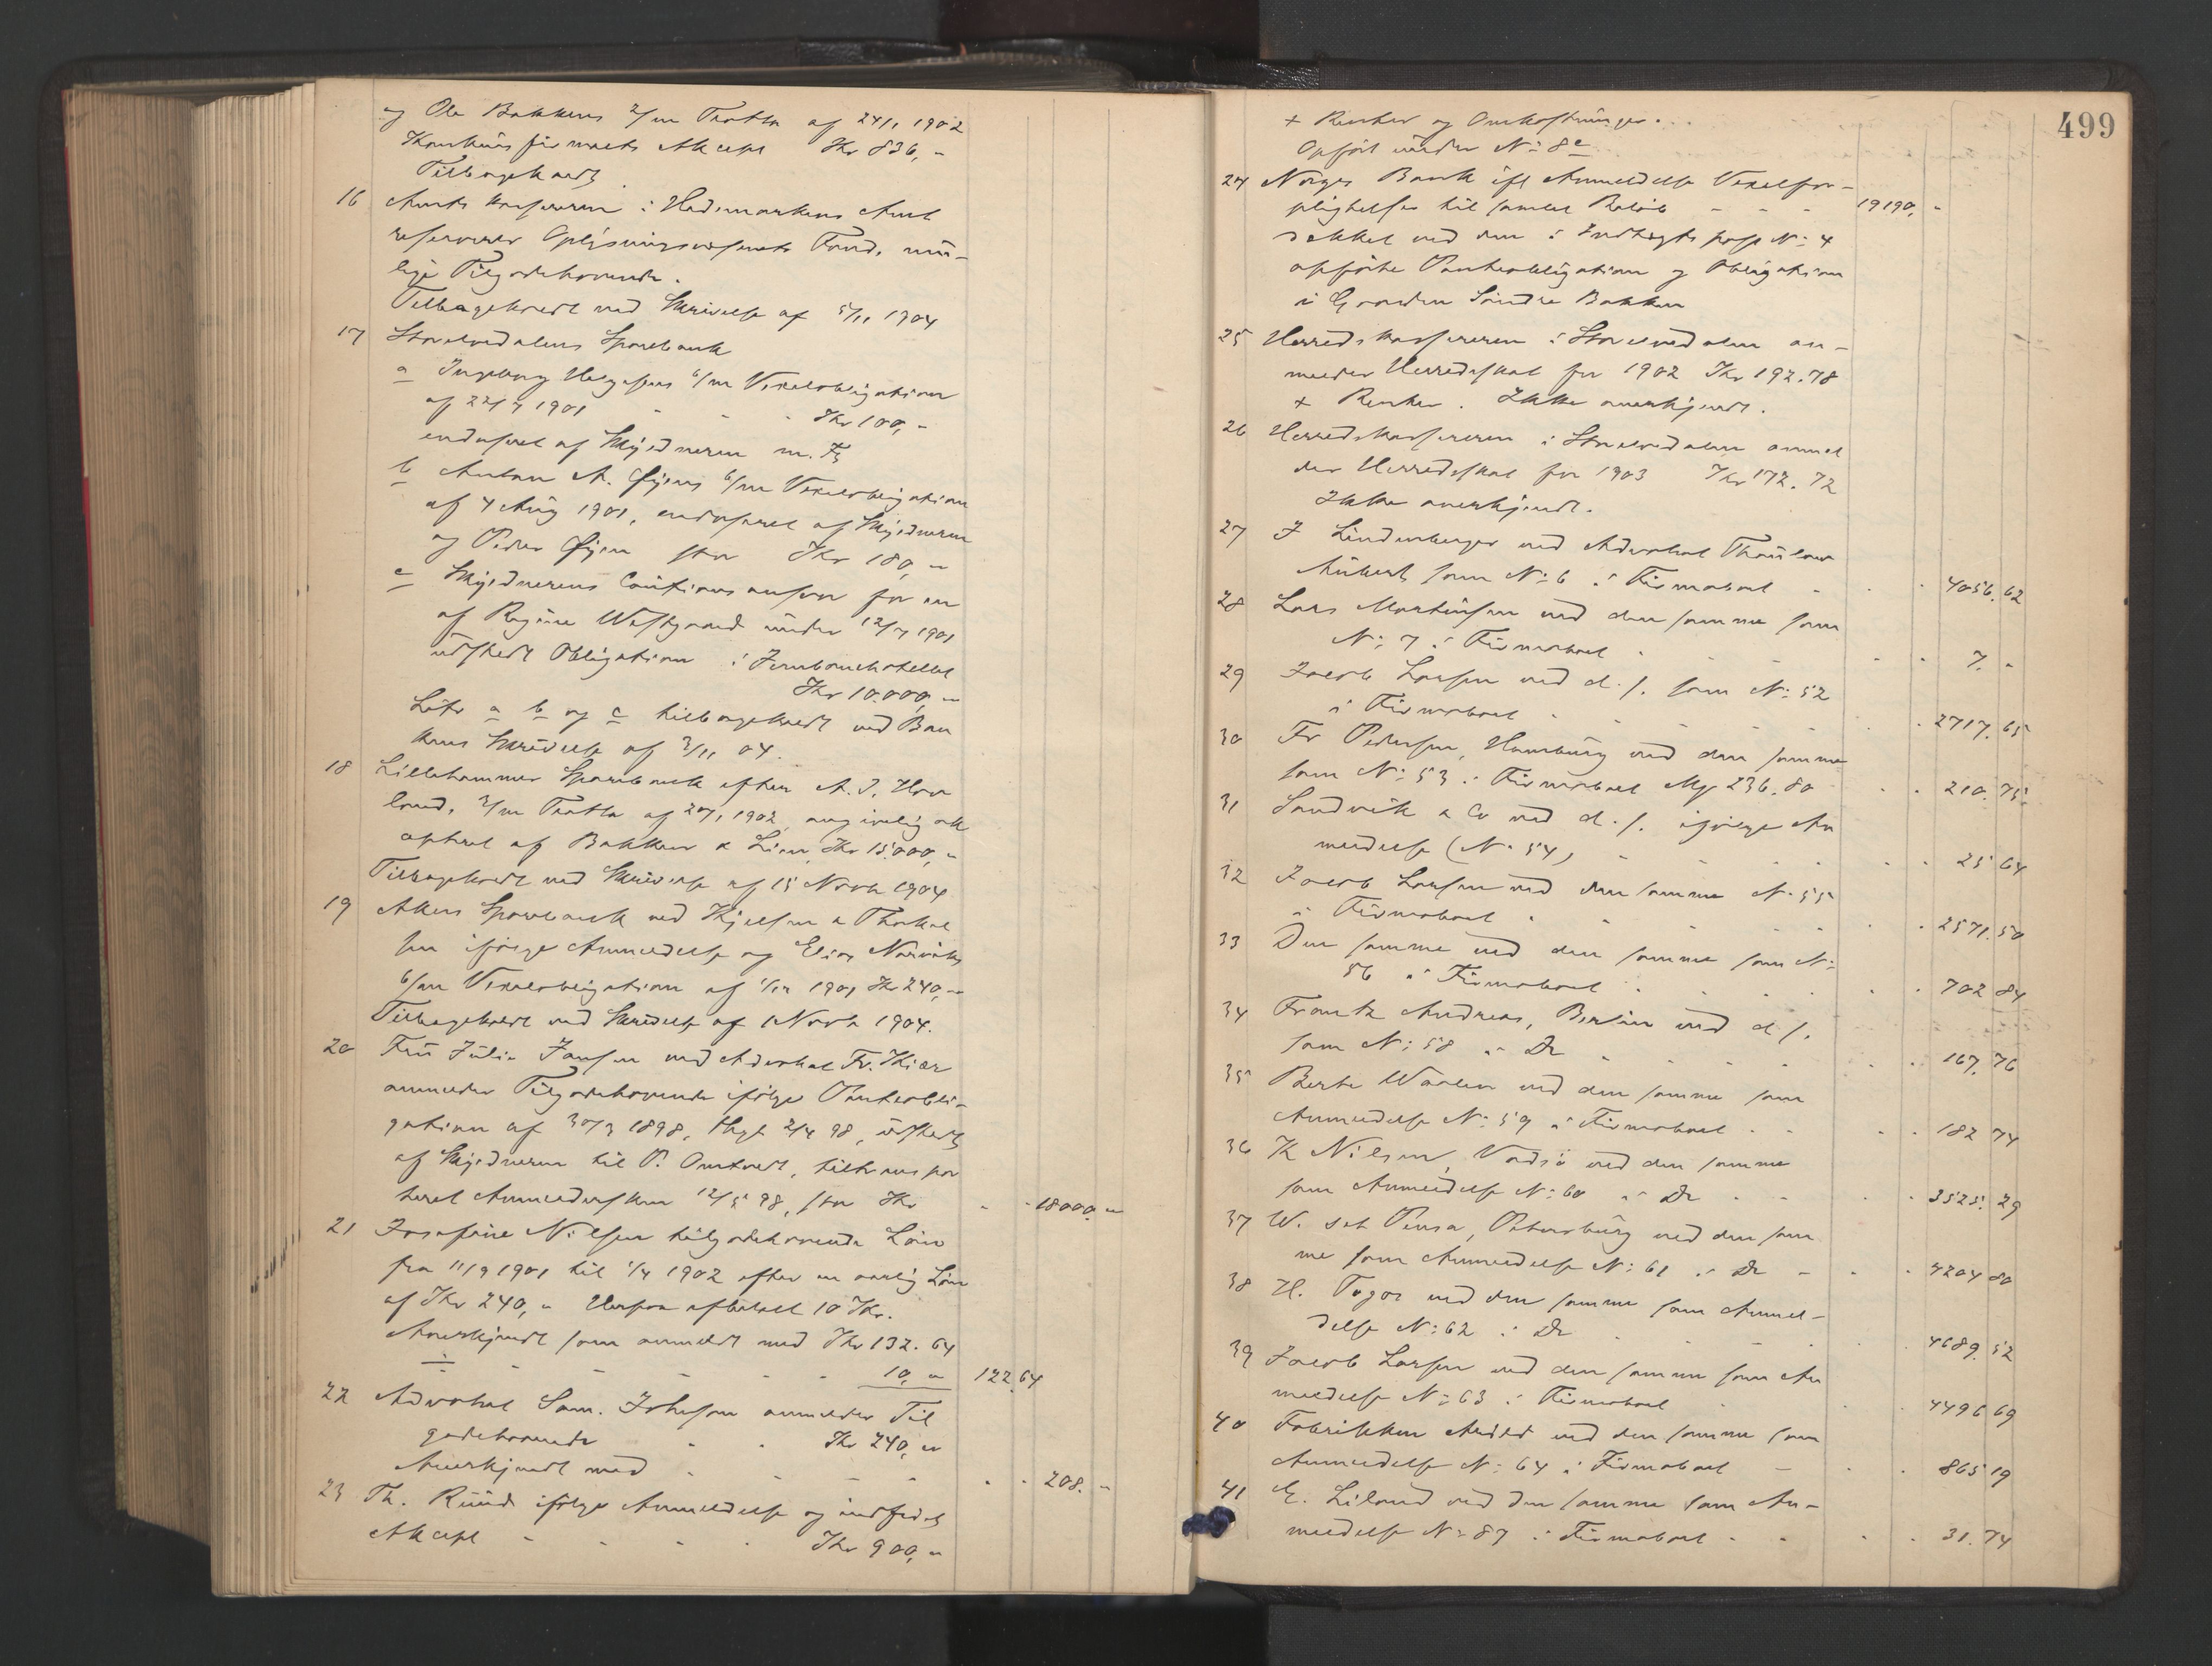 og Ole Bakkens 2/m Tratte af 24/1 1902
Konkursfirmaets Akcept Kr 836,-
Tilbagekaldt
16 Amtskassereren i Hedemarkens Amt
reserverer Oplysningsvæsenets Fond, mu-
lige Tilgodehavende.
Tilbagekaldt ved Skrivelse af 5/11 1904
17 Storelvedalens Sparebank
a Ingeborg Helgesens 6/m Vexelobligation
af 22/7 1901 - - Kr 100,-
endosseret af Skyldneren m. Fl
b Anton A. Øyens 6/m Vexelobligation
af 4 Aug 1901, endosseret af Skyldneren
og Peder Øyen stor Kr 180,-
c Skyldnerens Cautionsansvar for en
af Regine Westgaard under 12/7 1901
udstedt Obligation i Jernbanehotellet
Kr 10.000,-
Litr a b og c tilbagekaldt ved Ban
kens Skrivelse af 3/11 04.
18 Lillehammer Sparebank efter A. J. Hov
land, 3/m Tratte af 20/1 1902, angivelig ak
cepteret af Bakken & Lien, Kr 15.000,-
Tilbagekaldt ved Skrivelse af 15 Novb 1904
19 Akers Sparebank ved Kjelsen & Thorkel
sen ifølge Anmeldelse og Elias Narviks
6/m Vexelobligation af 1/12 1901 Kr 240,-
Tilbagekaldt ved Skrivelse af 1 Novb 1904.
20 Fru Julie Jansen ved Advokat Fr. Kiær
anmelder Tilgodehavende ifølge Panteobli-
gation af 30/3 1898, thgl 2/4 98, udstedt
af Skyldneren til P. Omtvedt, transpor
teret Anmeldersken 12/5 98, stor Kr - - 18000,-
21 Josefine Nilsen tilgodehavende Løn
fra 11/9 1901 til 1/4 1902 efter en aarlig Løn
af Kr 240,- Herpaa afbetalt 10 Kr.
Anerkjendt som anmeldt med Kr 132.64
÷ - - - - 10,- 122,64
22 Advokat Sam. Johnson anmelder Til
godehavende - - Kr 240,-
Anerkjendt med - - - - - - 208.-
23 Th. Ruud ifølge Anmeldelse og indfriet
Akcept - - - - Kr 900,-
499
+ Renter og Omkostninger...
Opført under No 8c
24 Norges Bank ifl Anmeldelse Vexelfor-
pligtelser til samlet Beløb - - - 19190,-
dækket ved den i Indtægtspost No 4
opførte Panteobligation og Obligation
i Gaarden Søndre Bakken
25 Herredskassereren i Storelvedalen an-
melder Herredsskat for 1902 Kr 192.78
+ Renter. Ikke anerkjendt.
26 Herredskassereren i Storelvedalen anmel
der Herredsskat for 1903 Kr 172.72
Ikke anerkjendt.
27 J Lindenberger ved Advokat Thaulow
Aubert som No 6 i Firmaboet - - - 4056.62
28 Lars Martinsen ved den samme som
No 7 i Firmaboet - - - - - 7.-
29 Jacob Larsen ved d. s. som No 52
i Firmaboet - - - - - - 2717.65
30 Fr Petersen, Hamburg ved den samme
som No 53 i Firmaboet Mk 236.80 - - 210.75
31 Sandvik & Co ved d. s. ifølge An
meldelse (No 54) - - - - - - 25 64
32 Jacob Larsen ved den samme No 55
i Firmaboet - - - - - - 2571.50
33 Den samme ved den samme som No
56 i Firmaboet - - - - - - 702 84
34 Frantz Andreas, Berlin ved d s.
som No 58 i Do - - - - - - 167.76
35 Berte Waalen ved den samme som
Anmeldelse No 59 i Firmaboet - - - - 182 74
36 K Nilsen, Vadsø ved den samme
som Anmeldelse No 60 i Do - - - - 3525.29
37 W. set Pensa, Petersburg ved den sam
me som Anmeldelse No 61 i Do - - - 4204 80
38 H. Togor ved den samme som Anmel-
delse No 62 i Do - - - - - 4689.52
39 Jacob Larsen ved den samme som An
meldelse No 63 i Firmaboet - - - 4496 69
40 Fabrikken Arild ved den samme som
Anmeldelse No 64 i Firmaboet - - - 865 19
41 E. Liland ved den samme som An-
meldelse No 87 i Firmaboet - - - 31.74